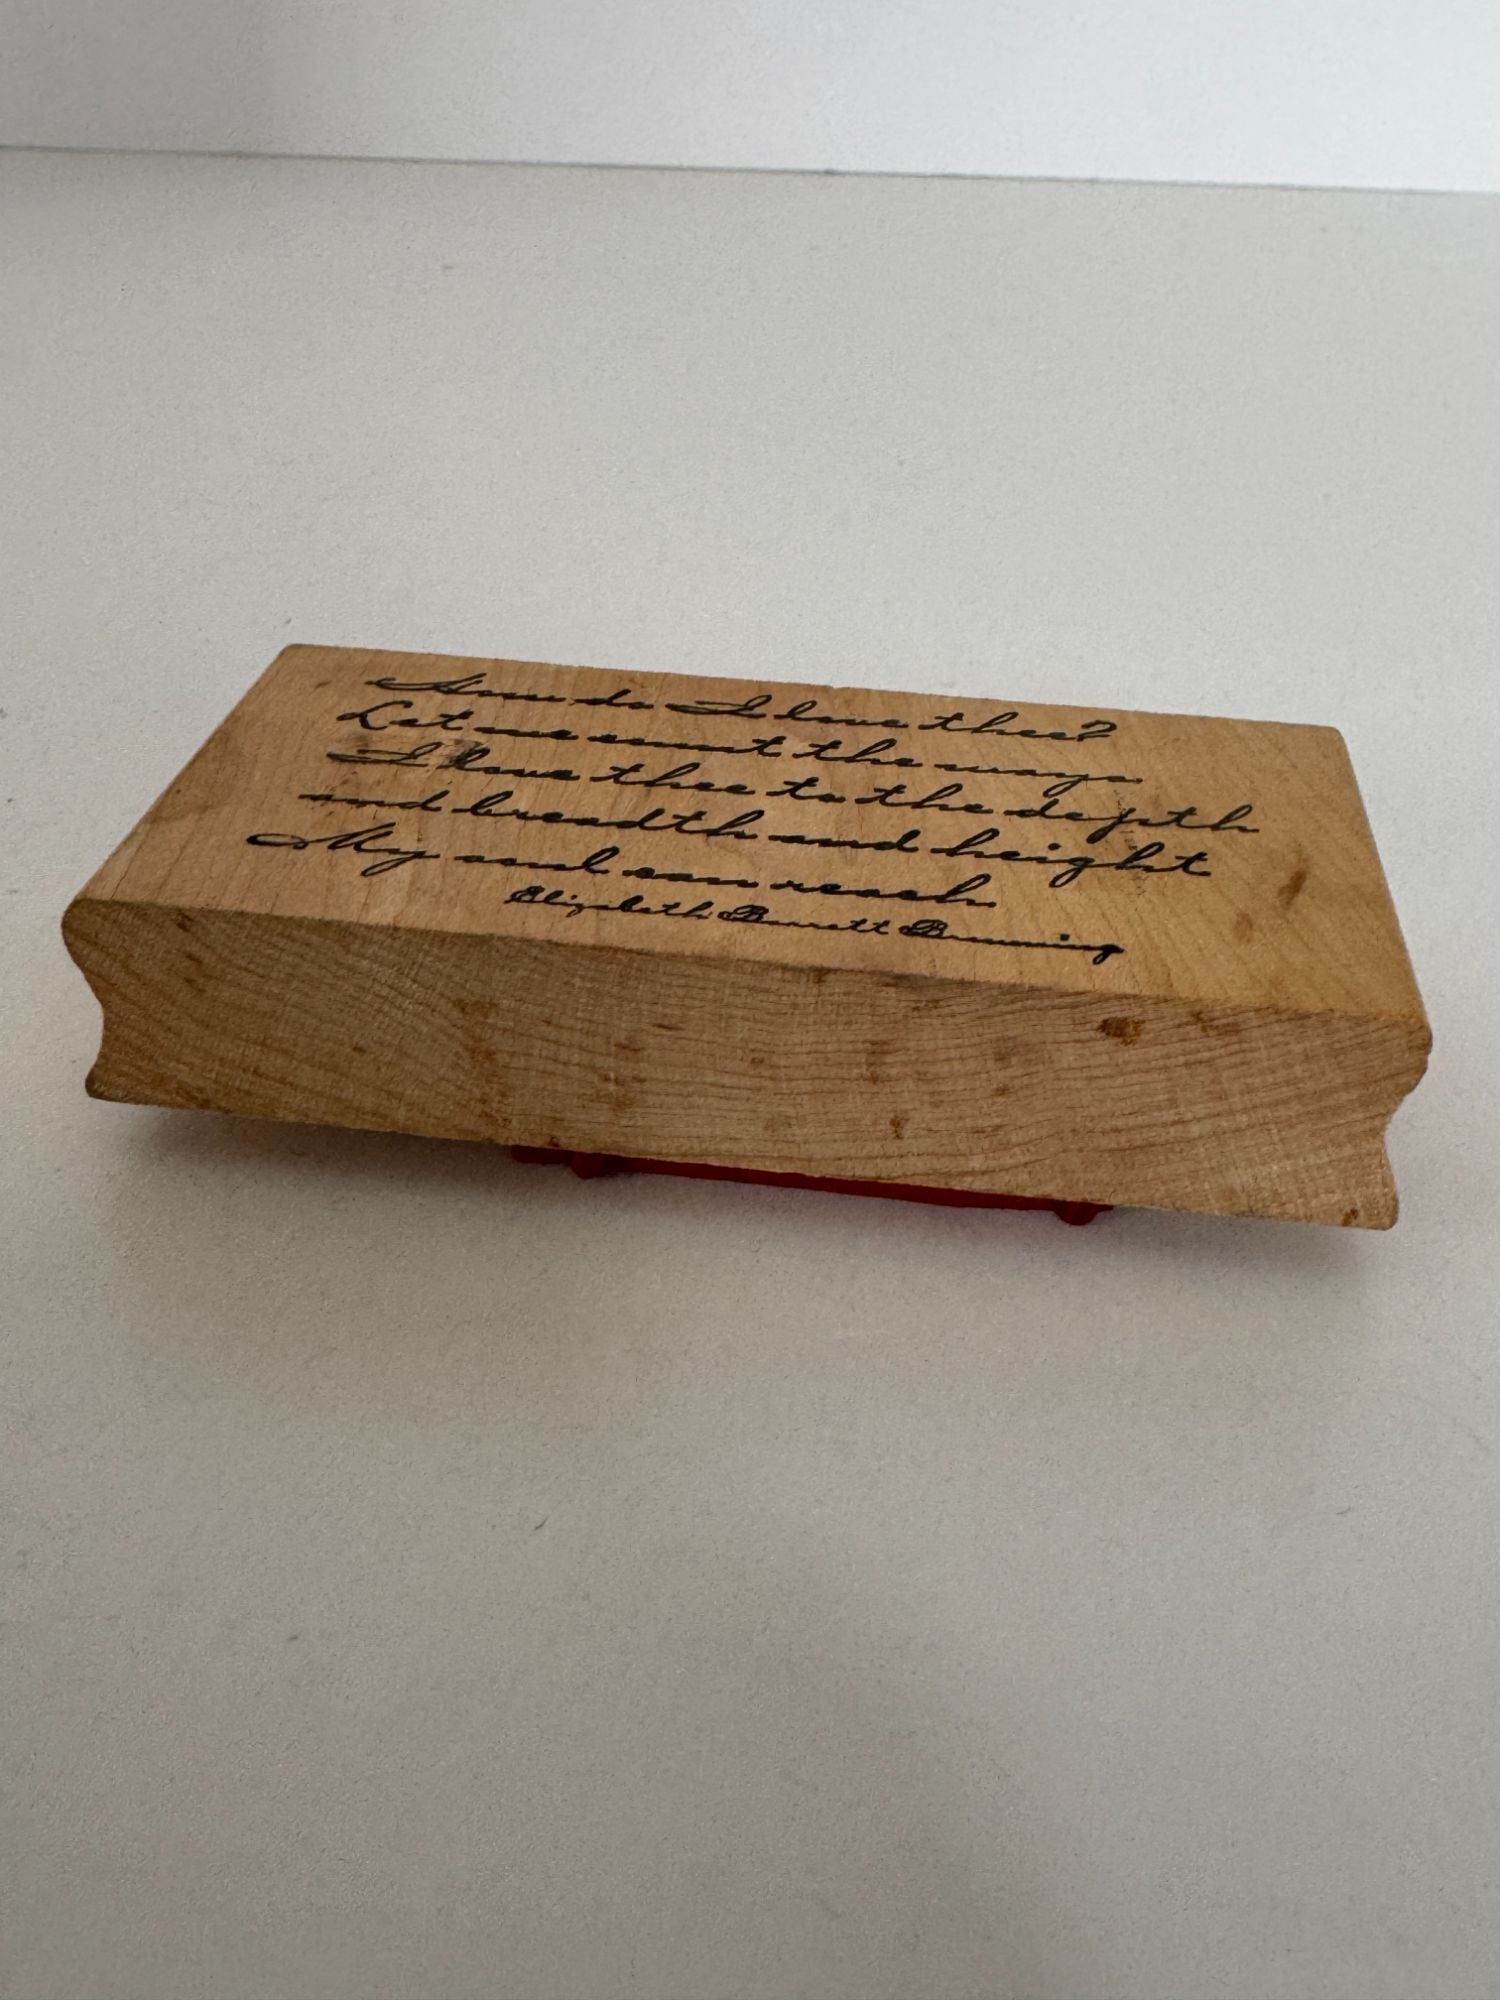 How do I love thee?
Let me count the ways
I love thee to the depth
and breadth and height
My soul can reach
Elizabeth Barrett Browning